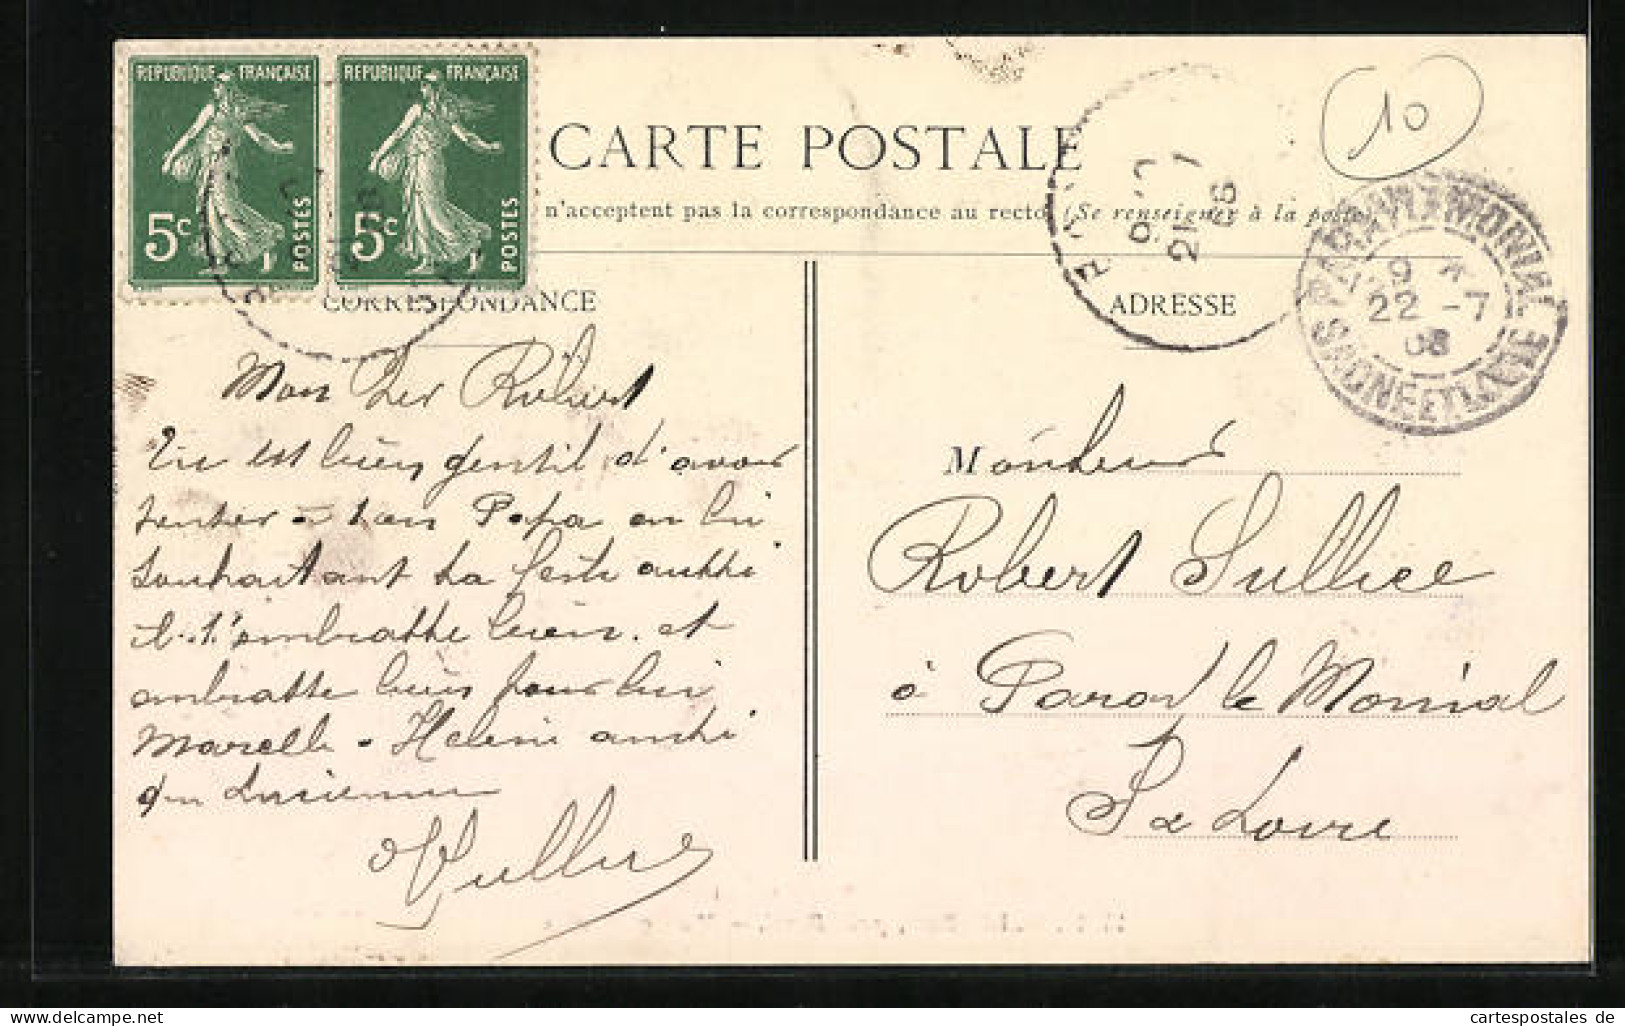 REPUBLIQUE FRANÇAISE
5c POSTES
REPUBLIQUE FRANÇAISE
5c POSTES
CARTE POSTALE
n'acceptent pas la correspondance au recto (Se renseigner à la poste)
10
21 -7
08
PARAY-LE-MONIAL
22 -7
08
SAONE-ET-LOIRE
CORRESPONDANCE
ADRESSE
Mon Cher Robert
Tu est bien gentil d'avoir
penser à ton Papa en lui
souhaitant sa fête aussi
il t'embrasse bien. et
embrasse bien pour lui
Marcelle. Helene aussi
que Lucienne
Monsieur
Robert Sullice
à Paray le Monial
S & Loire
cartespostales de